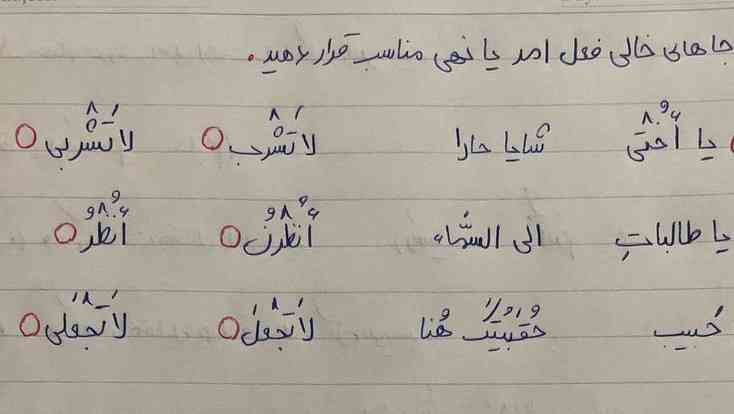 جاهای خالی فعل امر یا نهی مناسب قرار دهید.
یا اُختی شایا حارا لا تَشْرب لا تَشْربی
یا طالباتِ الی السَّماء اُنْظُرْنَ اُنظُر
حُبیب حَقیبَتِک هُنا لا تَجْعَلْ لا تَجْعَلی